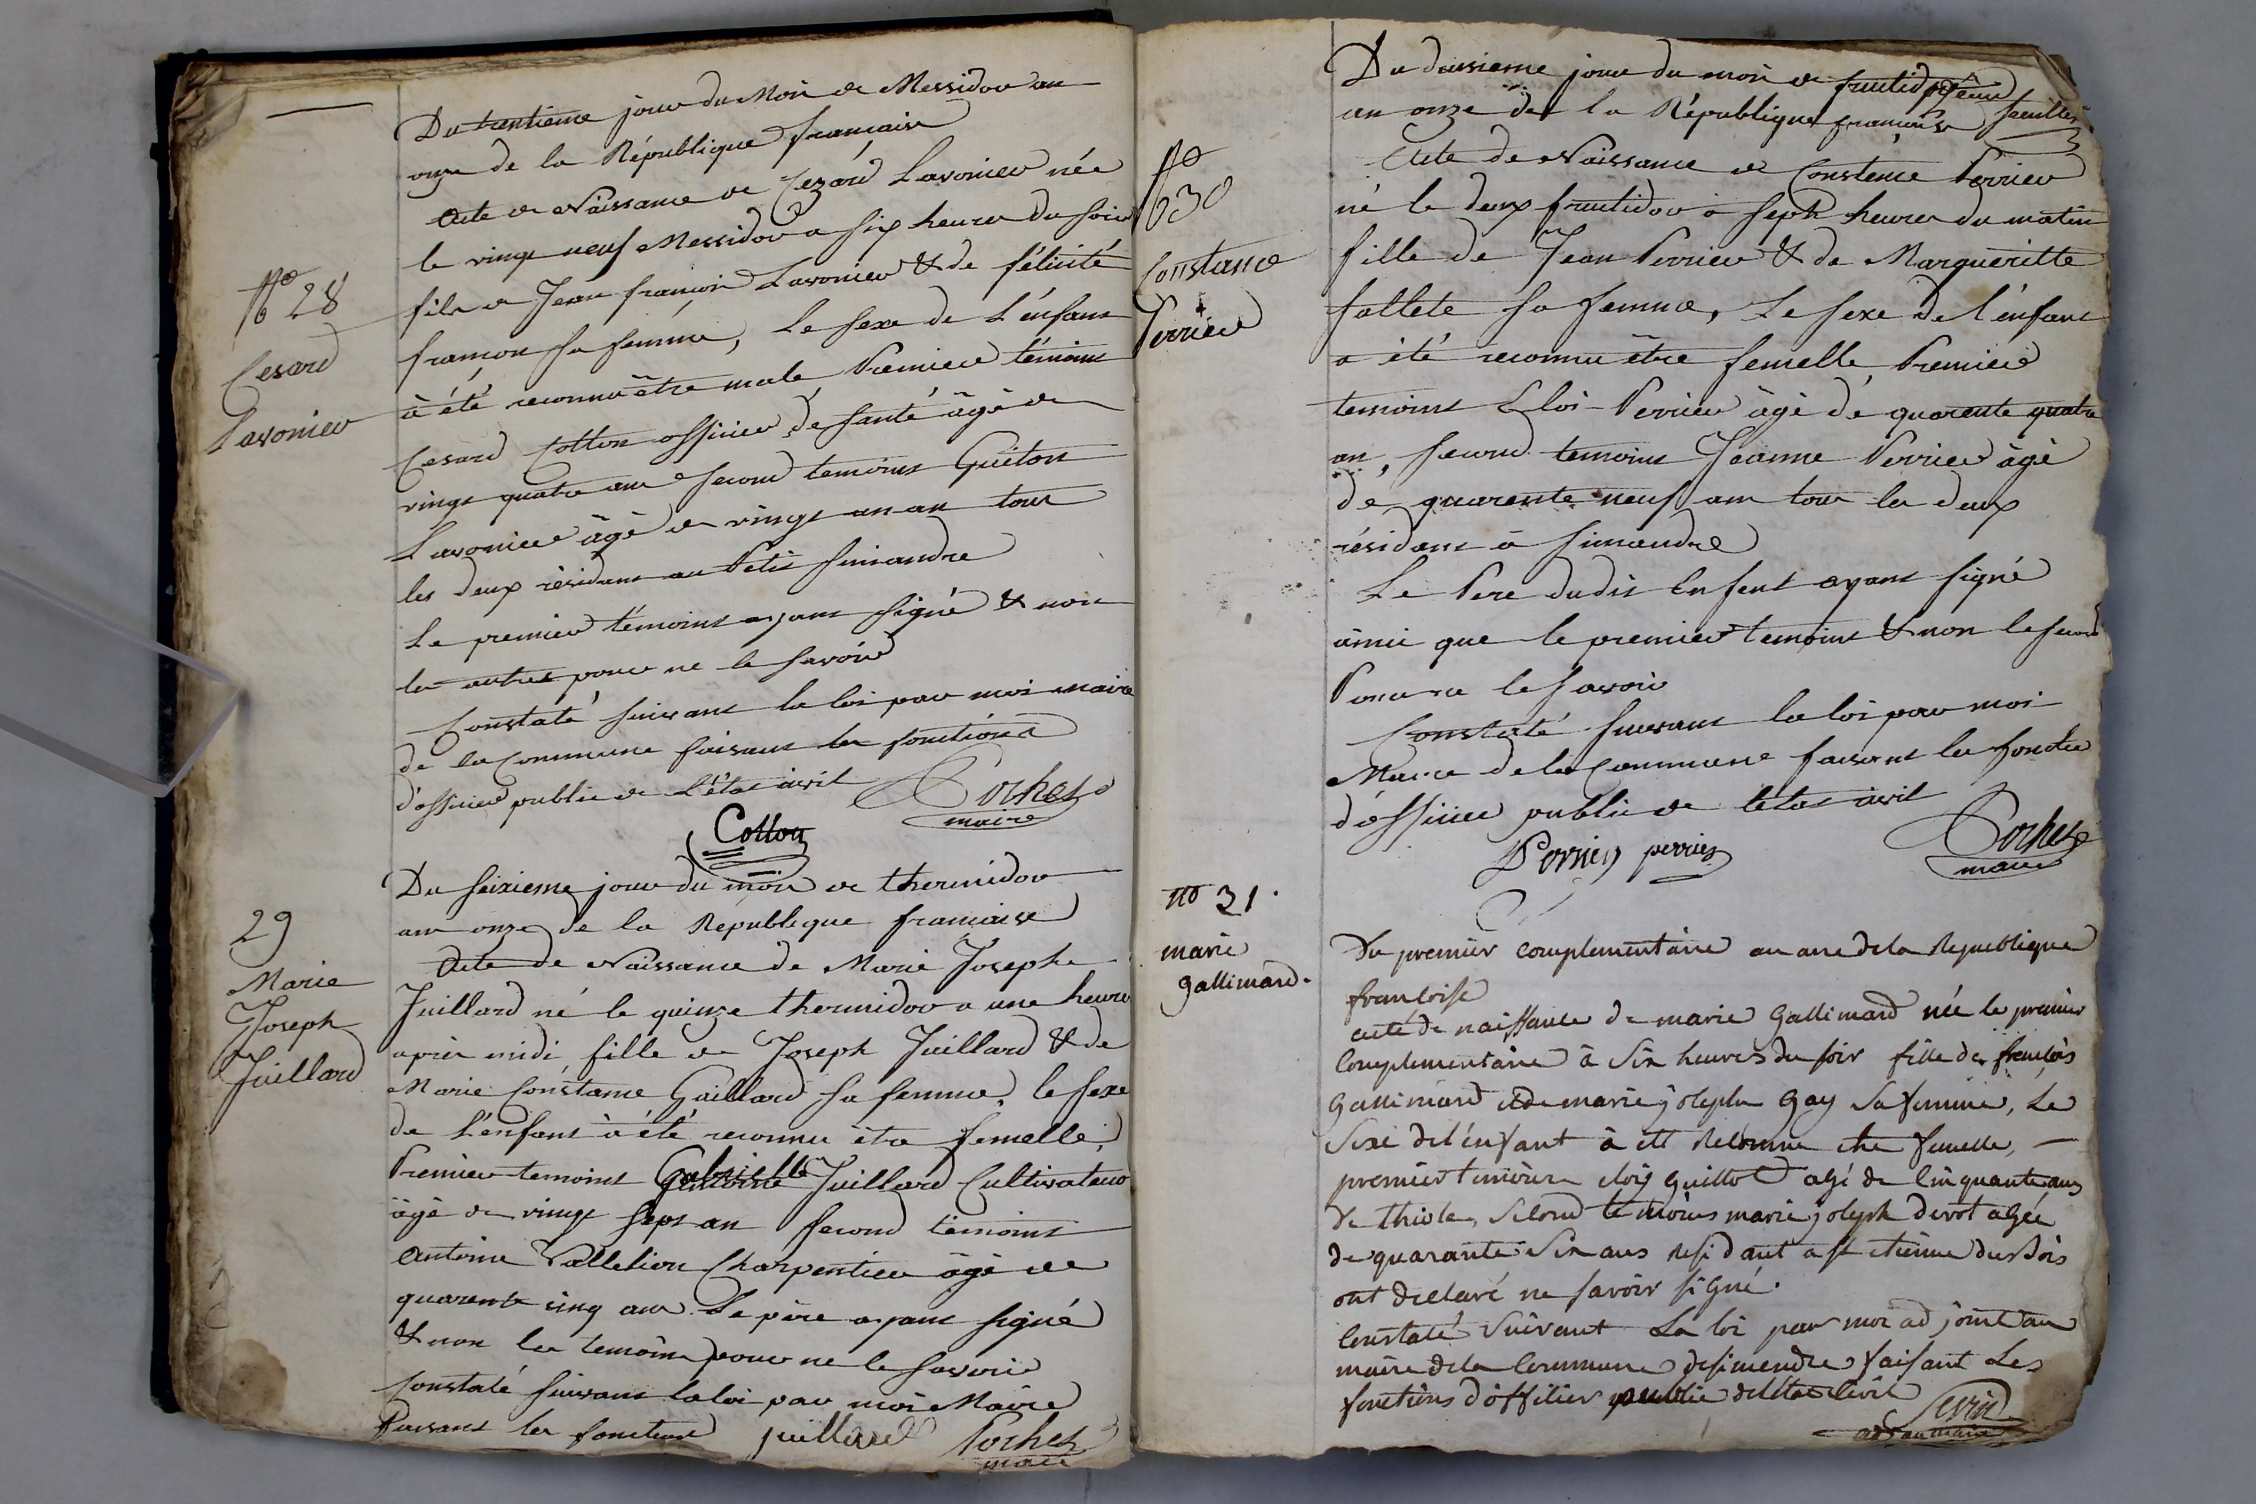 Du trentieme jour du Mois de Messidor an
onze de la République française
Acte de Naissance de Cezard Lavonier née
le vingt neuf Messidor a six heures du soir
fils de Jean françois Lavonier & de félicité
françon sa femme, Le sexe de L'énfant
à été reconnu être male Premier témoins
Cesard Cotton officier de santé âgé de
vingt quatre ans second temoins Guéton
Lavonier âgé de vingt un an tous
les deux résidant au Petit simandre
Le premier témoins ayant signé & non
les autres pour ne le savoir
Constaté suivant la loi par moi maire
de la Commune faisant les fonctions
d'officier public de L'état civil
Cochet
maire
Cotton
No 28
Cesard
Lavonier
Du seixieme jour du mois de thermidor
an onze de la Republique française
Acte de Naissance de Marie Joseph
Juillard né le quinze thermidor a une heure
après midi fille de Joseph Juillard & de
Marie Constance Gaillard sa femme, le sexe
de L'enfant à été reconnu être femelle,
Premier temoins Gabrielle Juillard Cultivateur
âgé de vingt sept an second temoins
Antoine Valletion Charpentier âgé de
quarente cinq ans Le père ayant signé
& non les temoins pour ne le savoir
Constaté suivant la loi par moi Maire
faisant les fonctions juillard Cochet
maire
29
Marie
Joseph
Juillard
Du deusieme jour du mois de fructidor
an onze de la République française
feuillet
Acte de Naissance de Constence Perrier
né le deux fructidor a sept heures du matin
fille de Jean Perrier & de Margueritte
follete sa femme, Le sexe de l'énfant
a été reconnu être femelle Premier
temoins Eloi Perrier âgé de quarente quatre
an, second temoins Jeanne Perrier âgé
de quarente neuf an tous les deux
résidant à simandre
Le Pere dudit Enfent ayant signé
ainsi que le premier temoins & non le second
Pour ne le savoir
Constaté suivant la loi par moi
Maire de la Commune faisant les fonctio
d'officier public de l'état civil
Perrier perrier
Cochet
maire
No 30
Constance
Perrier
Du premier complementaire an onze de la Republique
françoise
acte de naissance de marie Gallimard née le premier
Complementaire à Six heures du soir fille de françois
Gallimard et de marie joseph Gay Sa femme, Le
Sexe de l'énfant à été Reconnu etre femelle,
premier temoins eloy guillot agé de Cinquante ans
de thiole, Second temoins marie joseph devot agée
de quarante Six ans Residant a st etienne du Bois
ont declaré ne savoir signé.
Constaté Suivant La loi par moi adjoint au
maire de la Commune de simendre faisant Les
fonctions d'officier public de l'état Civil
adj au maire
no 31.
marie
gallimard.